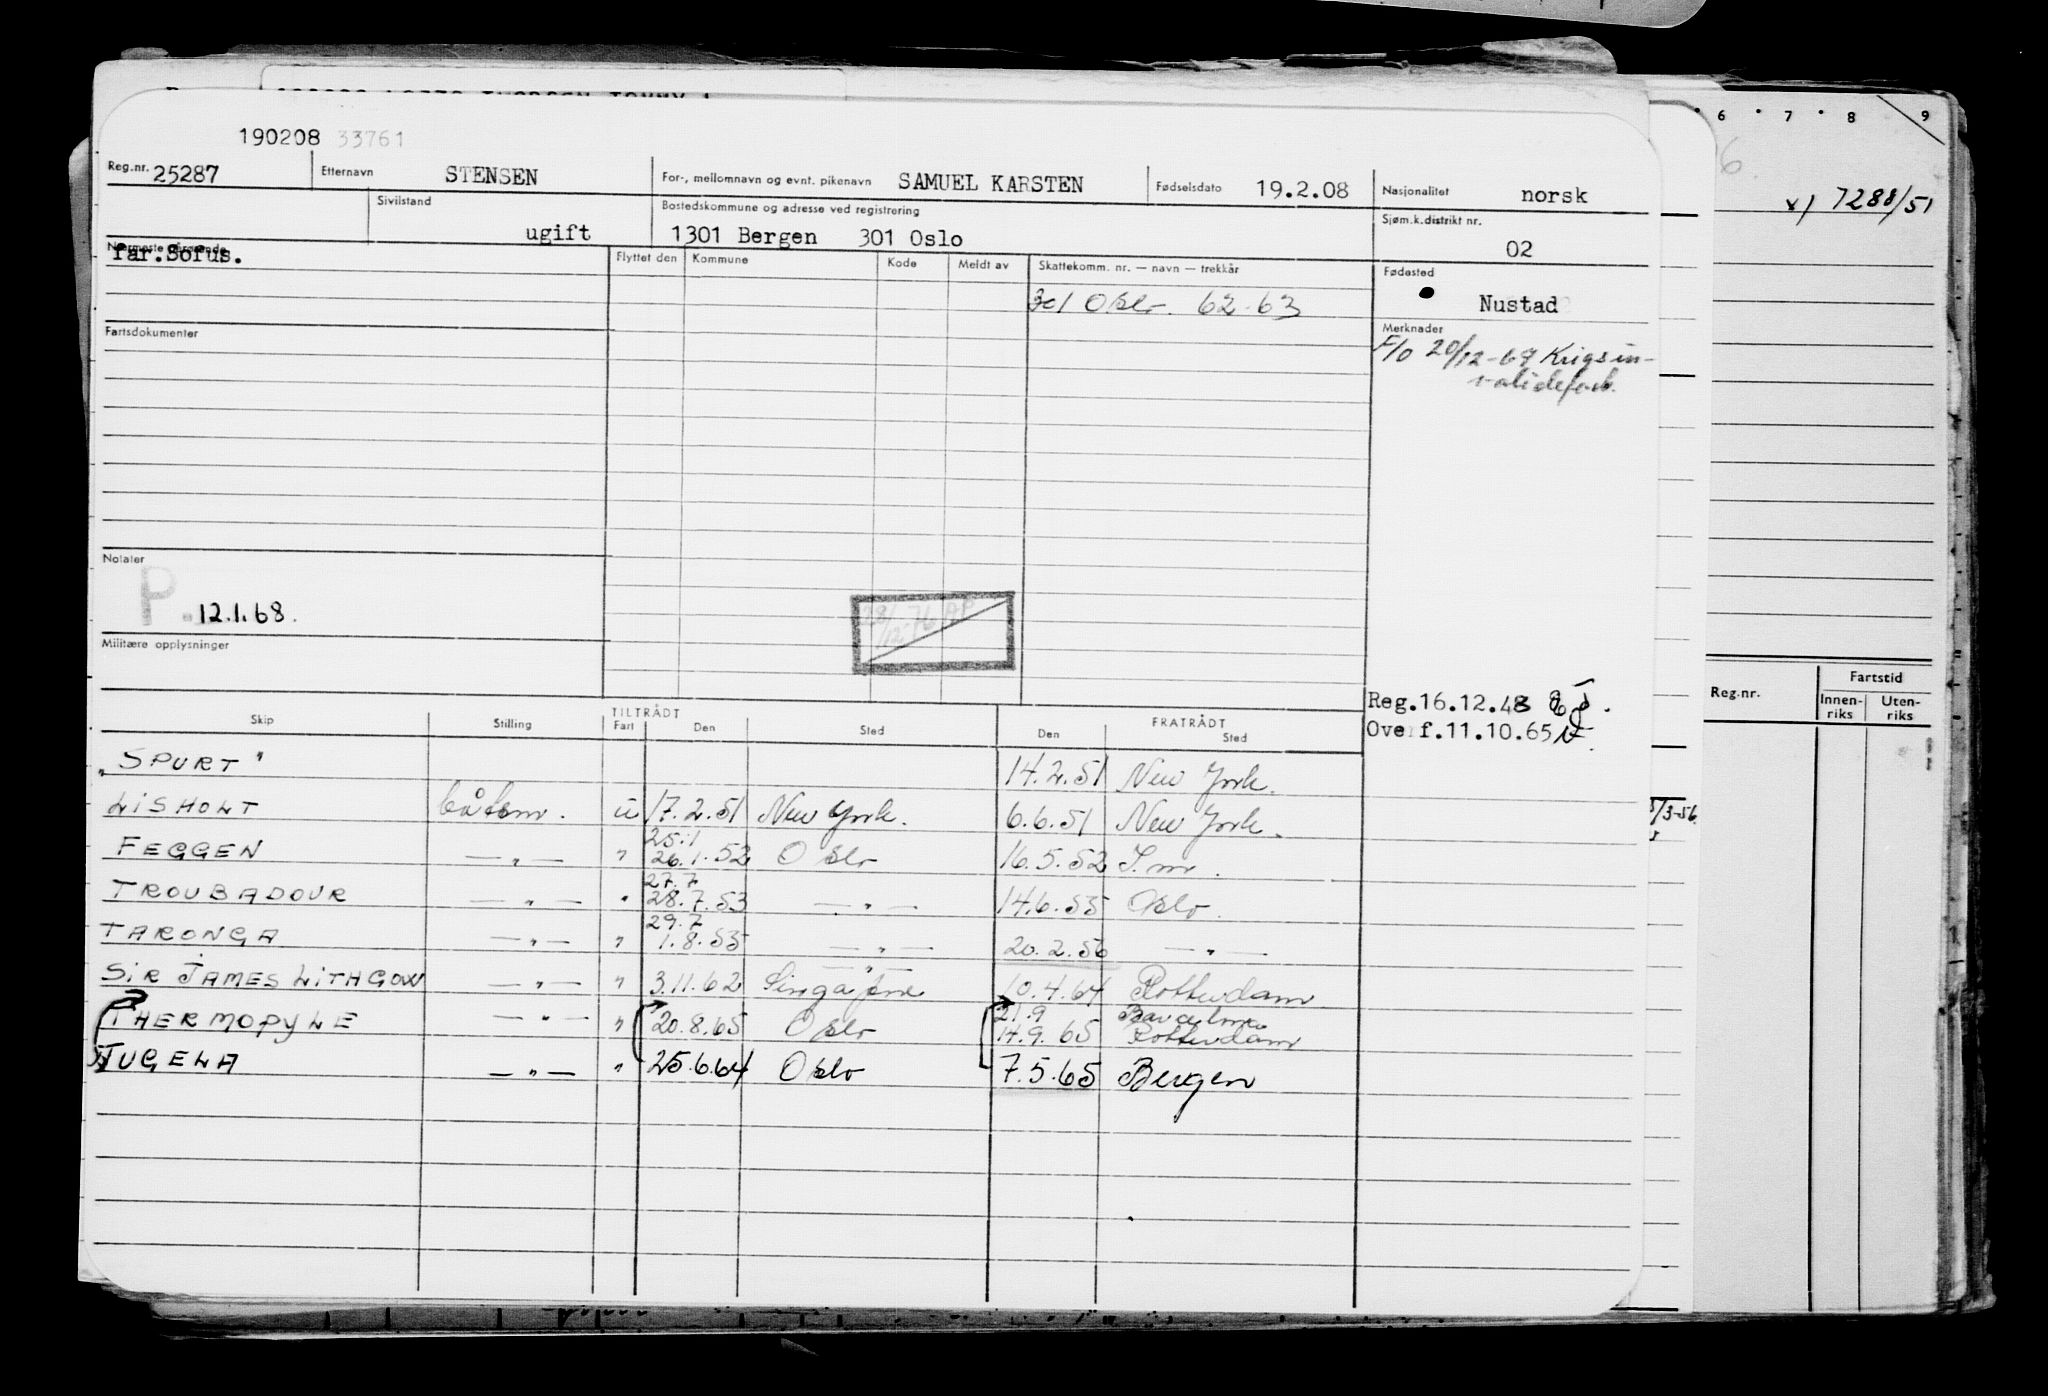 190208 33761
Reg.nr. 25287 Etternavn STENSEN For-, mellomnavn og evnt. pikenavn SAMUEL KARSTEN Fødselsdato 19.2.08 Nasjonalitet norsk
Sivilstand ugift Bostedskommune og adresse ved registrering 1301 Bergen 301 Oslo Sjøm.k.distrikt nr. 02
Nærmeste pårørende far.Sofus. Flyttet den Kommune Kode Meldt av Skattekomm. nr. — navn — trekkår Fødested Nustad
301 Oslo. 62-63
Fartsdokumenter
Merknader
F/O 20/12-67 Krigsin-
validefork.
Notater
P. 12.1.68.
28/12-76 AP
Militære opplysninger
Reg.16.12.48
Overf.11.10.65
TILTRÅDT FRATRÅDT
Skip Stilling Fart Den Sted Den Sted
"SPURT" 14.2.51 New York.
LISHOLT båtsm. u 17.2.51 New York. 6.6.51 New York.
25.1
FEGGEN —"— " 26.1.52 Oslo 16.5.52
27.7
TROUBADOUR —"— " 28.7.53 —"— 14.6.55 Oslo.
29.7
TARONGA —"— " 1.8.55 —"— 20.2.56 —"—
—"—
SIR JAMES LITHGOW —"— " 3.11.62 Singapore 10.4.64 Rotterdam
21.9 Barcelona
THERMOPYLE —"— " 20.8.65 Oslo 14.9.65 Rotterdam
TUGELA —"— " 25.6.64 Oslo 7.5.65 Bergen
6 7 8 9
6.
x) 7288/51
Reg.nr. Fartstid
Innen-
riks
Uten-
riks
/3-56